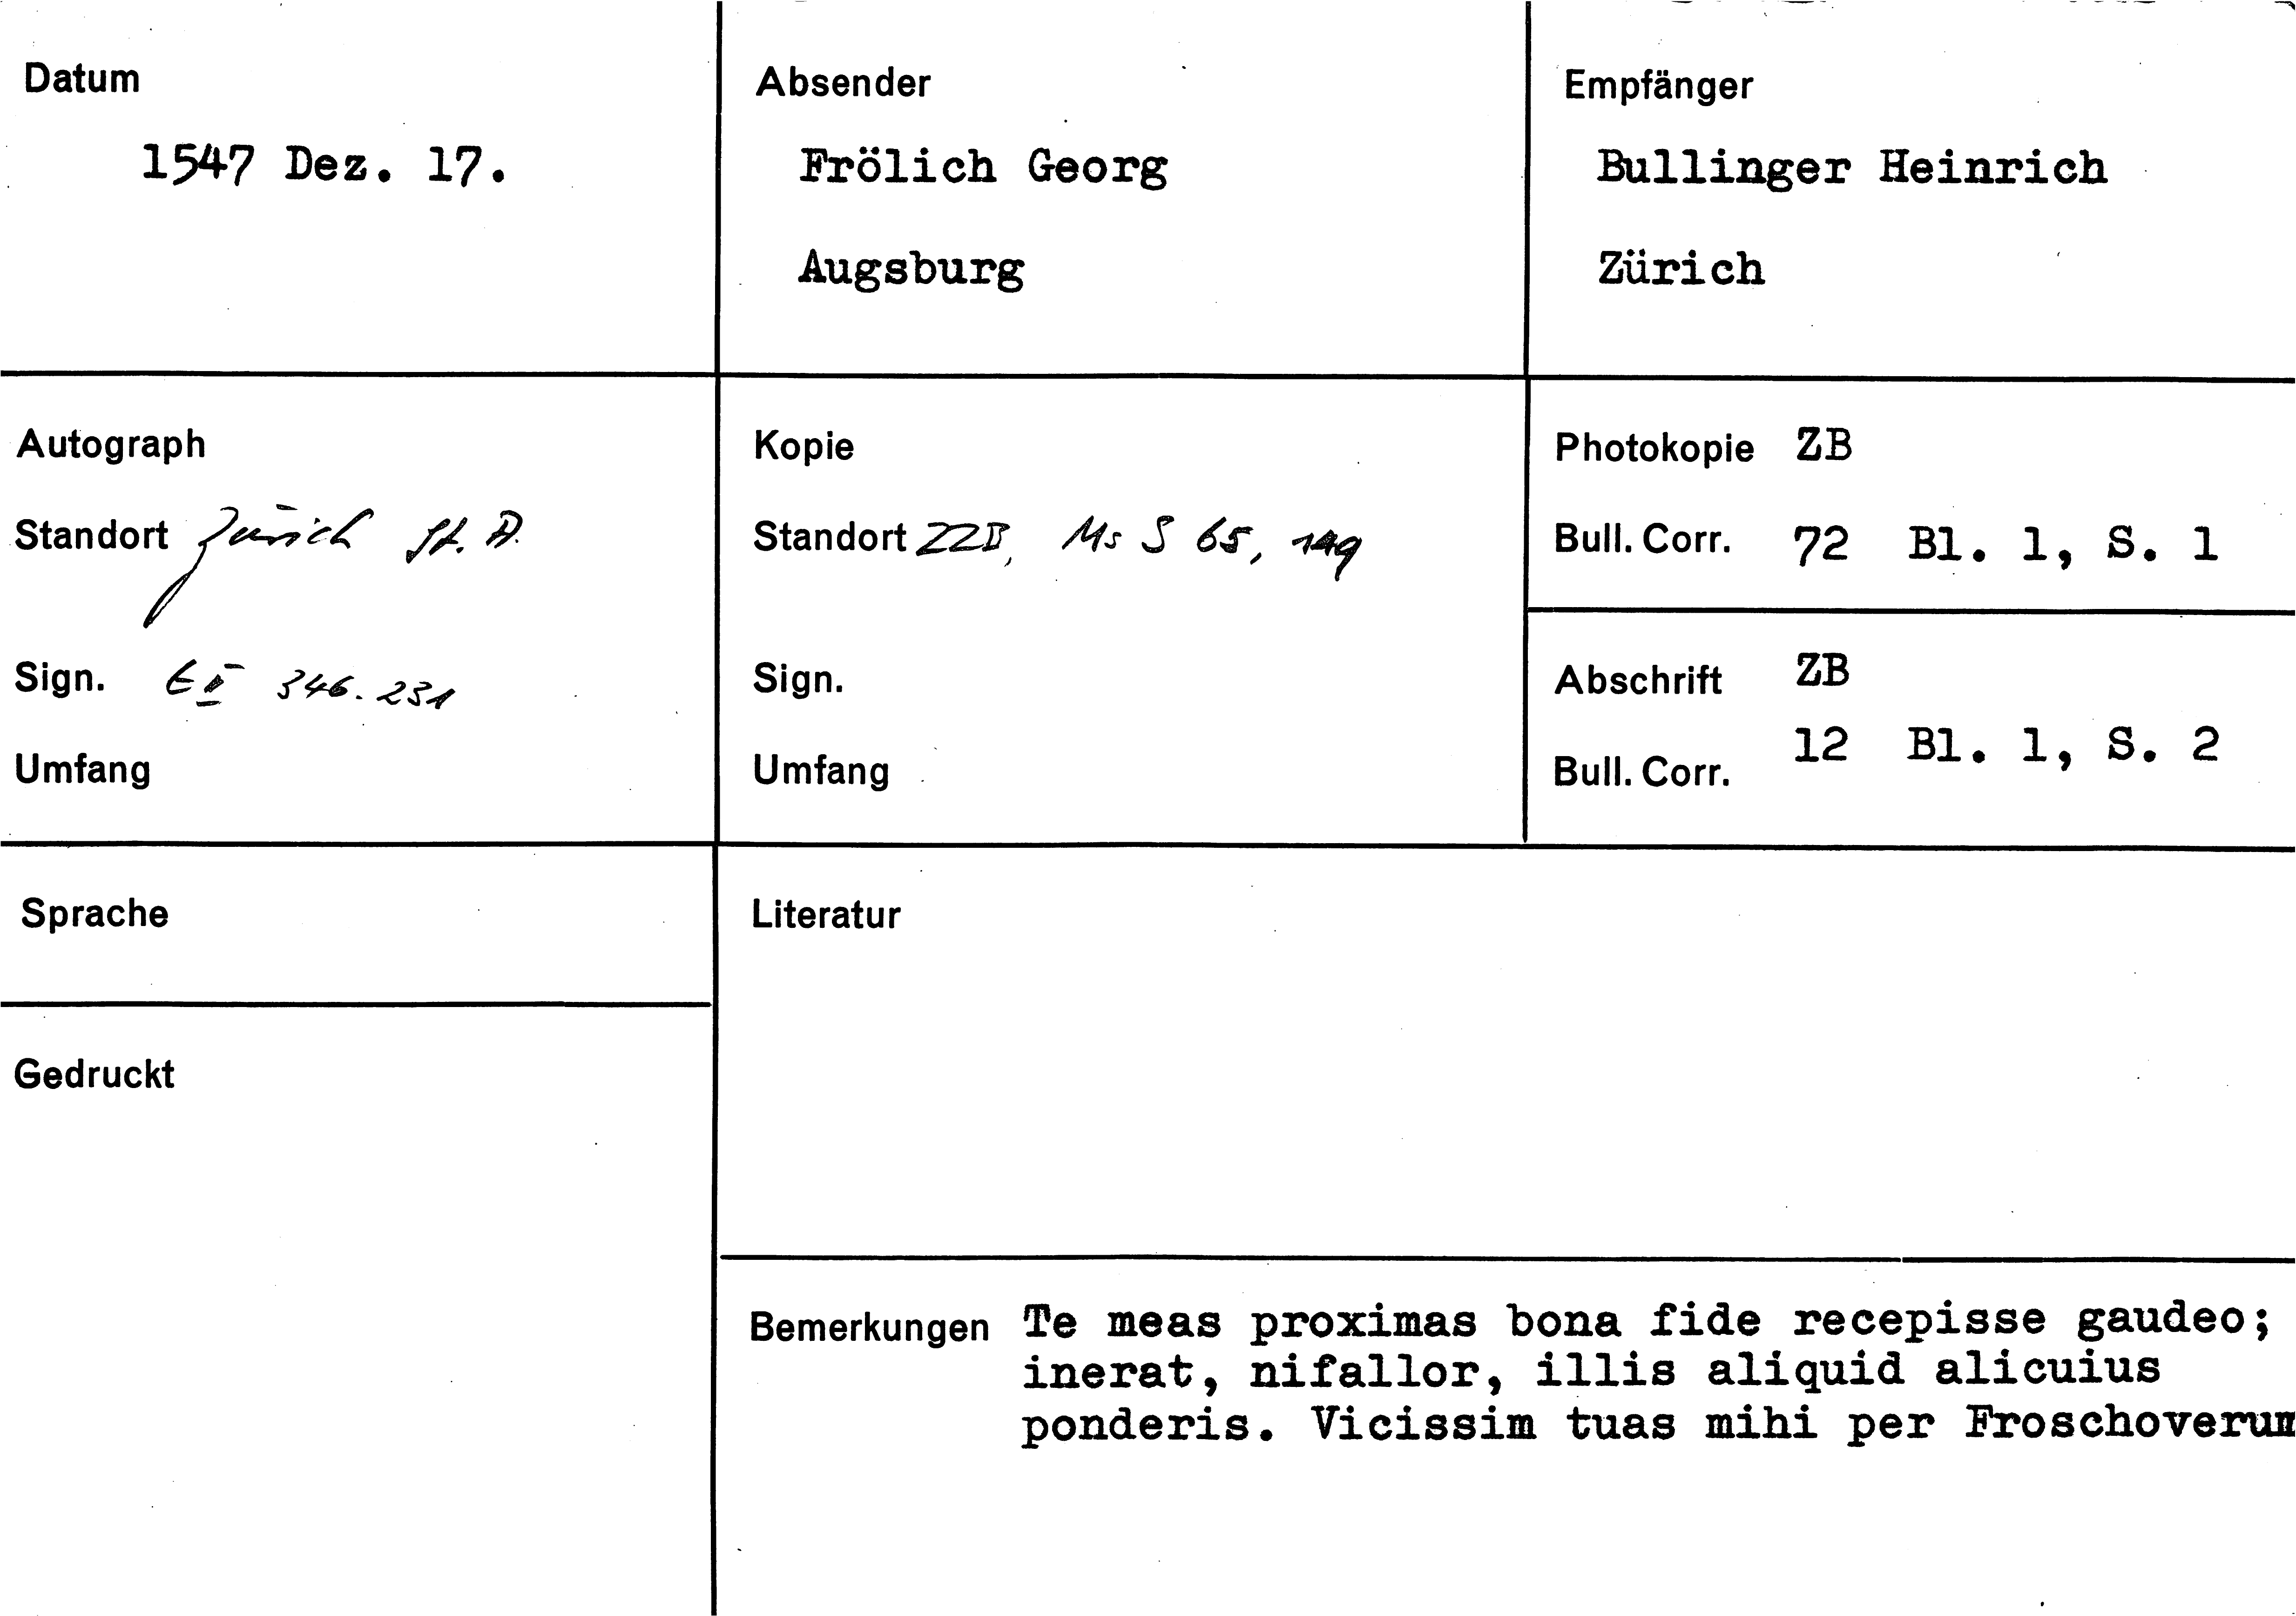 Datum
1547 Dez. 17.
Absender
Frölich Georg
Augsburg
Empfänger
Bullinger Heinrich
Zürich
Autograph
Standort Zürich St. A.
Sign. E II 346. 231
Umfang
Kopie
Standort ZZB, Ms S 65, 149
Sign.
Umfang
Photokopie ZB
Bull. Corr. 72 Bl. 1, S. 1
Abschrift ZB
Bull. Corr. 12 Bl. 1, S. 2
Sprache
Gedruckt
Literatur
Bemerkungen Te meas proximas bona fide recepisse gaudeo;
inerat, nifallor, illis aliquid alicuius
ponderis. Vicissim tuas mihi per Froschoverum